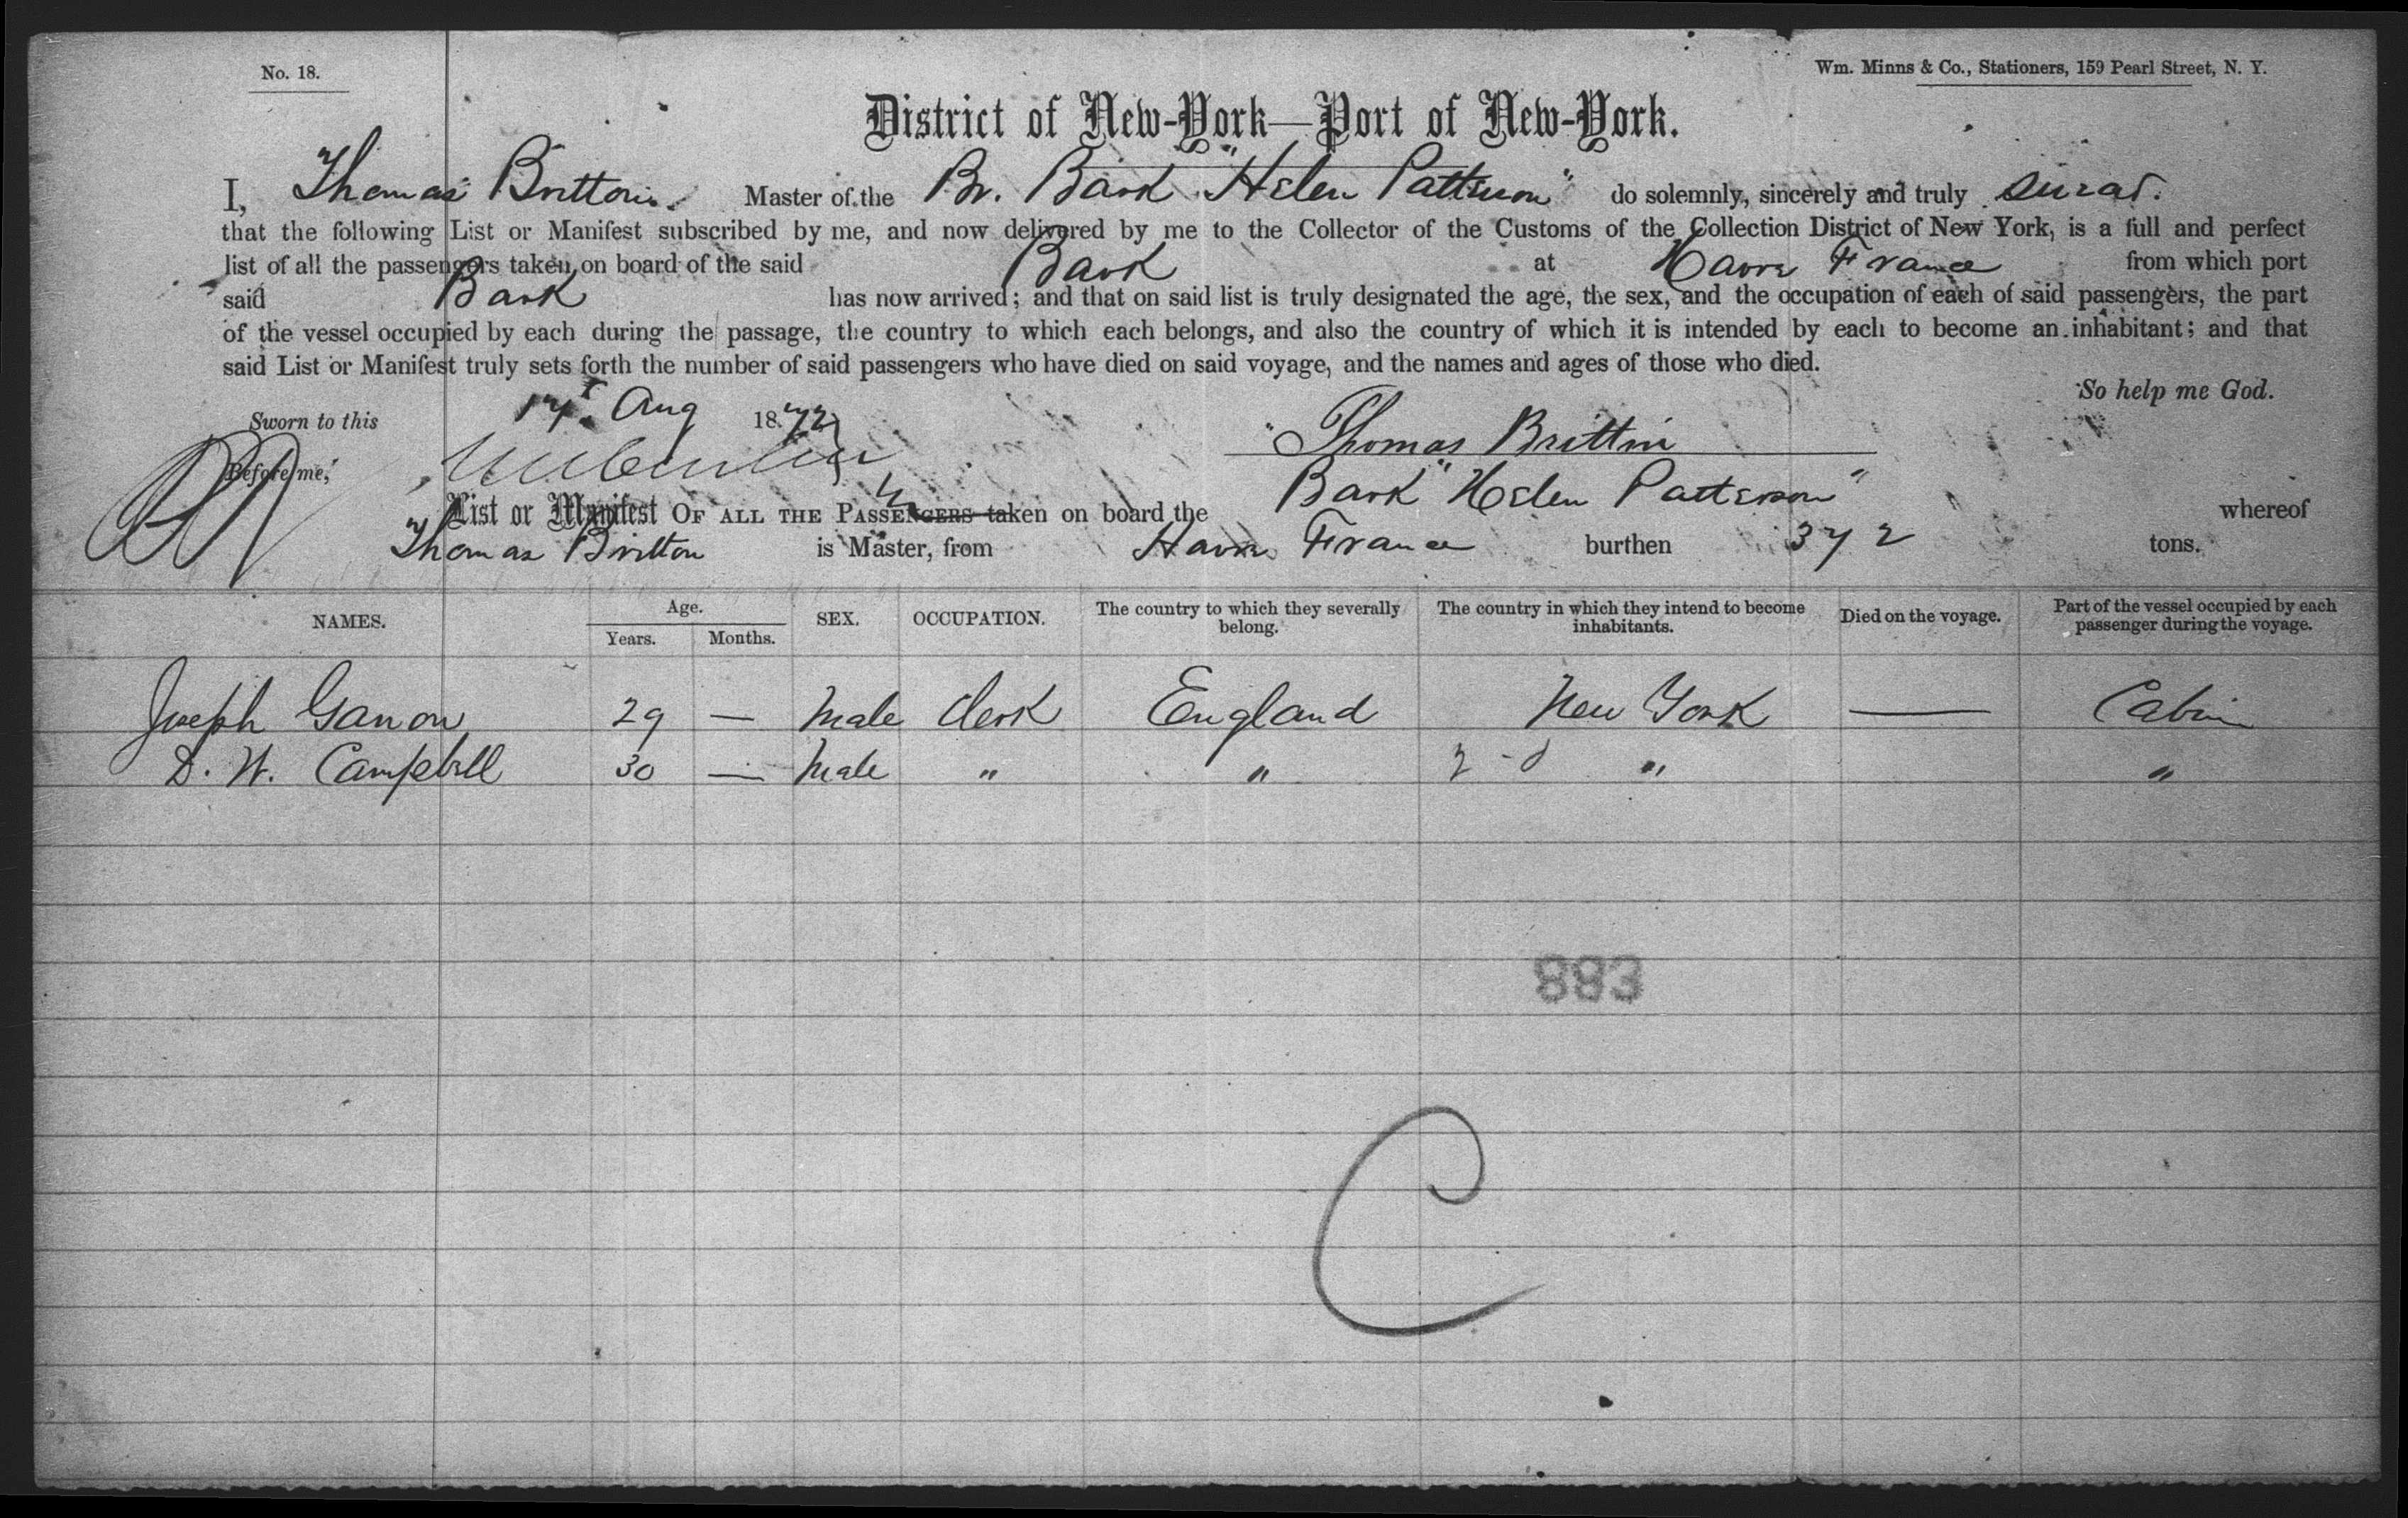 No. 18.
Wm. Minns & Co., Stationers, 159 Pearl Street, N. Y.
District of New-York—Port of New-York.
I, Thomas Britton Master of the Br. Bark "Helen Patterson" do solemnly, sincerely and truly swear
that the following List or Manifest subscribed by me, and now delivered by me to the Collector of the Customs of the Collection District of New York, is a full and perfect
list of all the passengers taken on board of the said Bark at Havre France from which port
said Bark has now arrived; and that on said list is truly designated the age, the sex, and the occupation of each of said passengers, the part
of the vessel occupied by each during the passage, the country to which each belongs, and also the country of which it is intended by each to become an inhabitant; and that
said List or Manifest truly sets forth the number of said passengers who have died on said voyage, and the names and ages of those who died.
So help me God.
Sworn to this Aug 1872
Thomas Britton
Before me,
List or Manifest OF ALL THE PASSENGERS taken on board the Bark "Helen Patterson" whereof
Thomas Britton is Master, from Havre France burthen 372 tons.
NAMES. Age. Years. Months. SEX. OCCUPATION. The country to which they severally belong. The country in which they intend to become inhabitants. Died on the voyage. Part of the vessel occupied by each passenger during the voyage.
Joseph Ganon 29 — Male Clerk England New York — Cabin
D. W. Campbell 30 — Male " " "  "
883
C